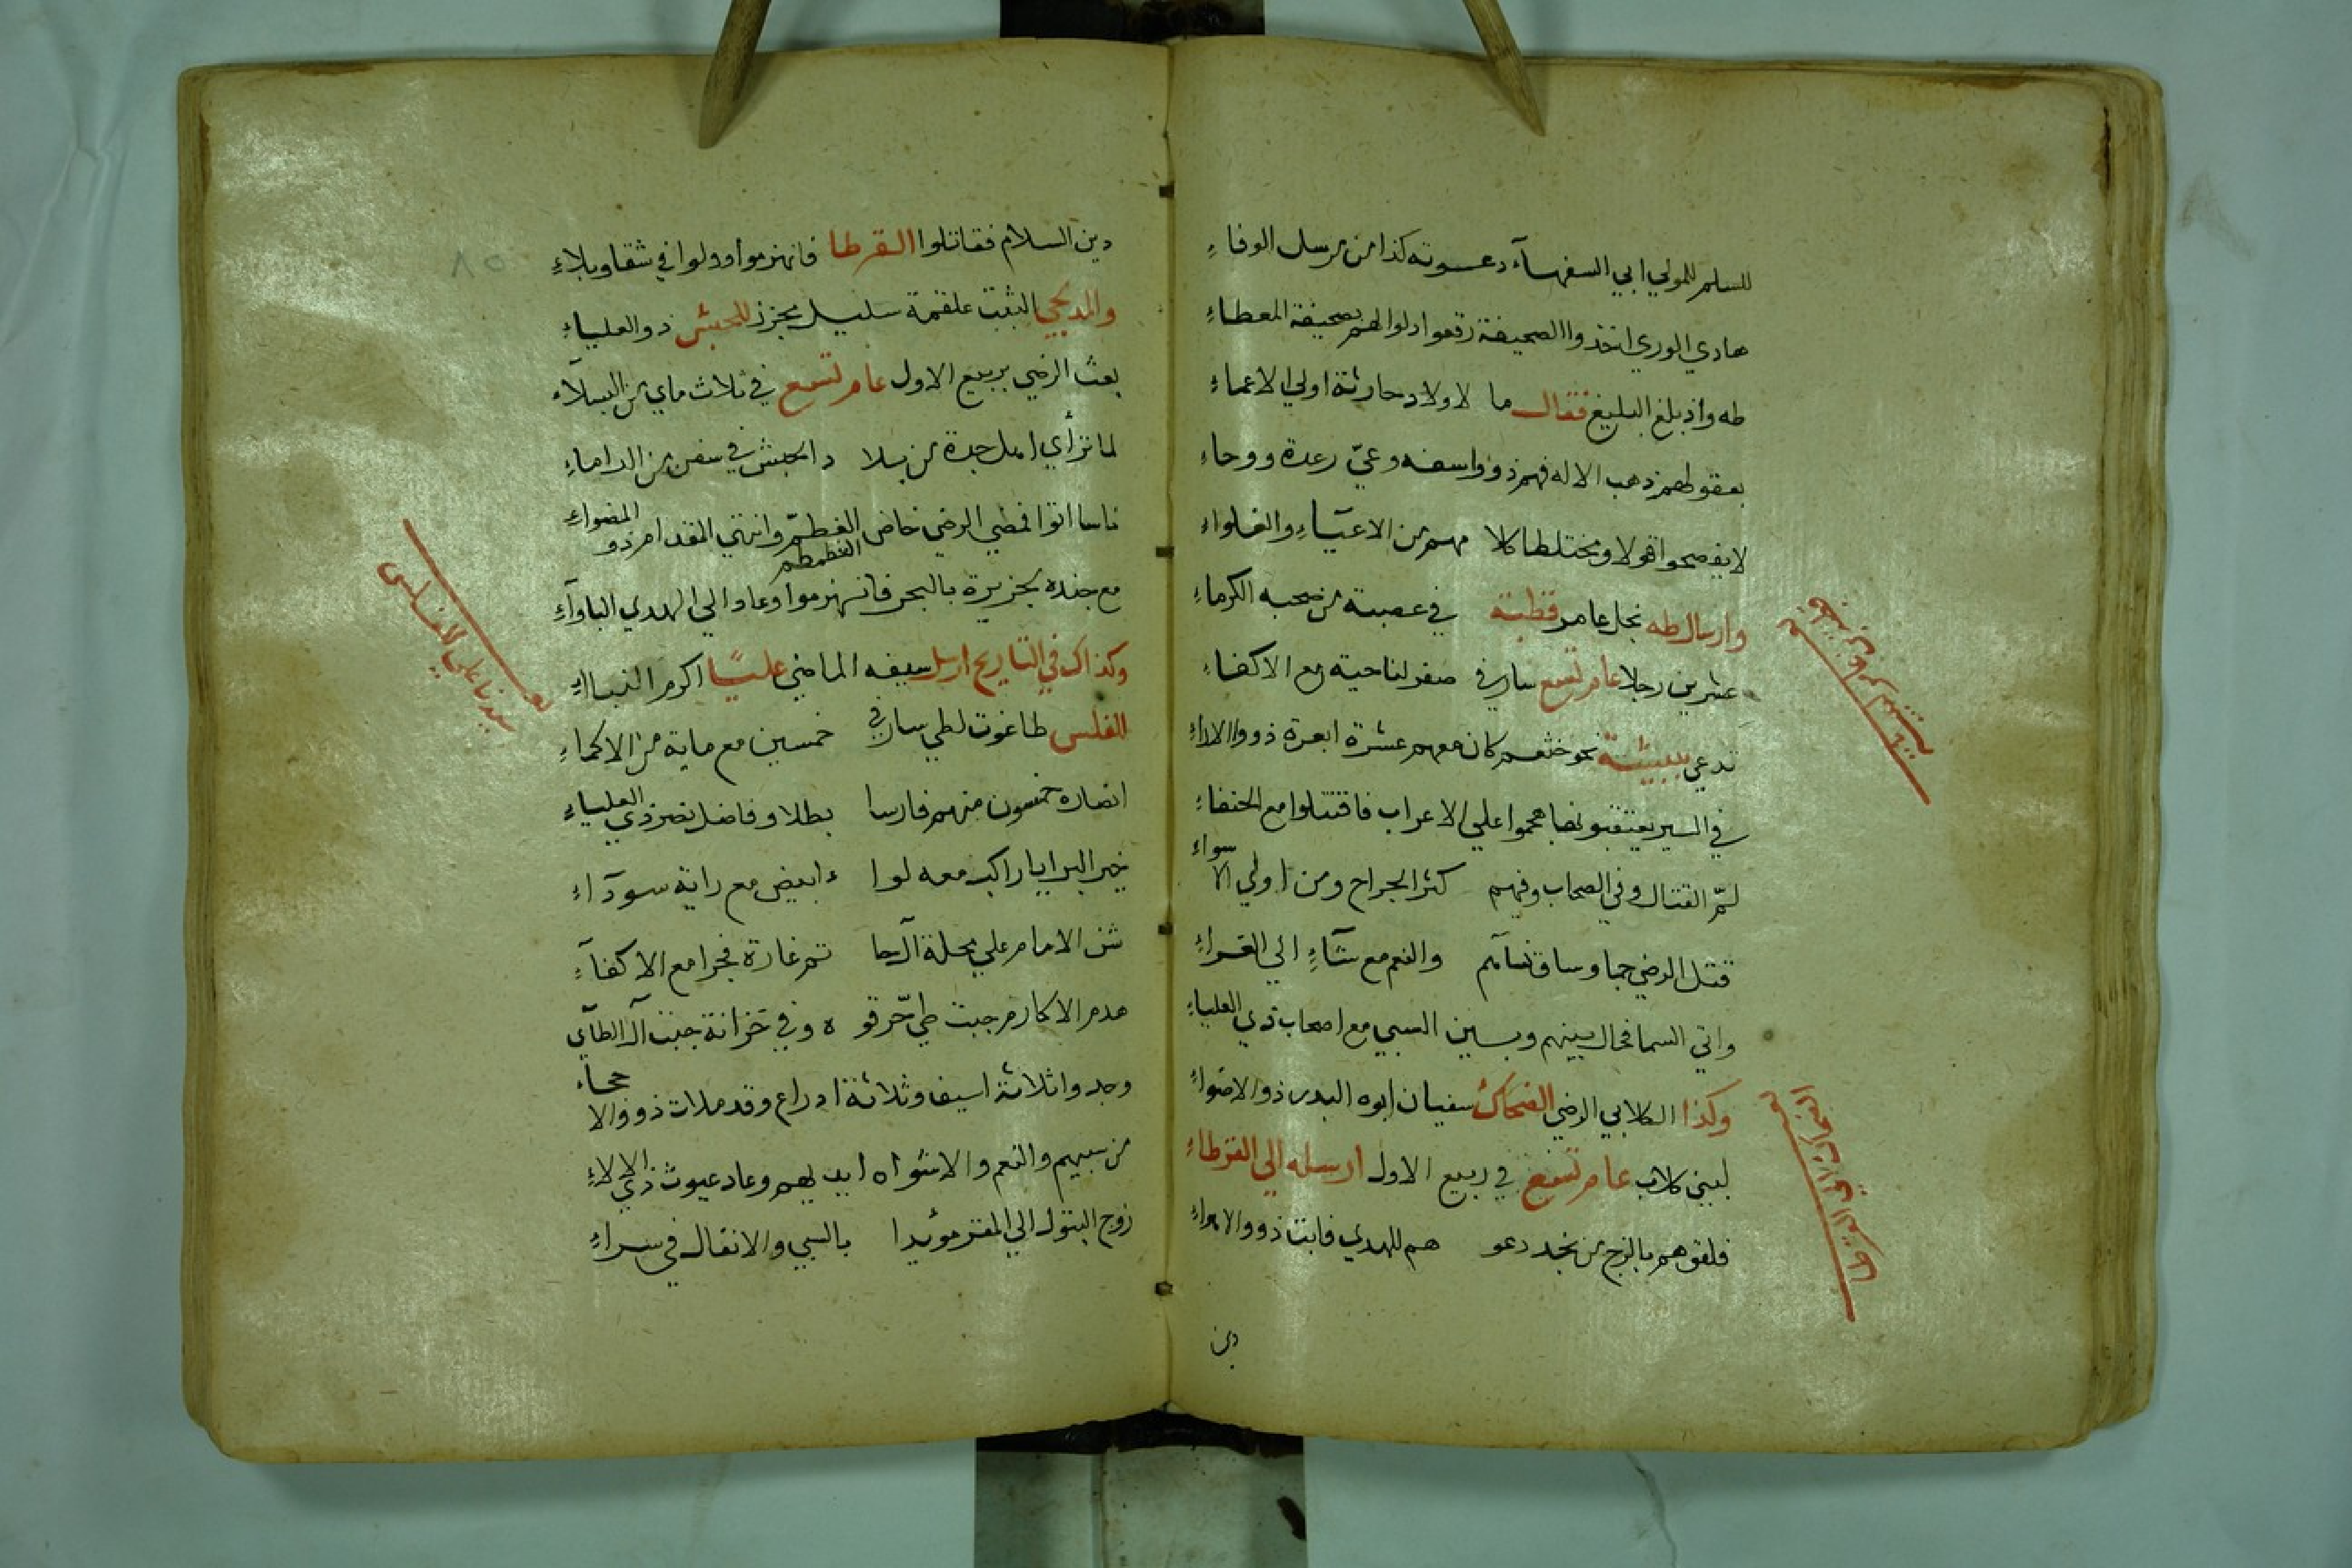 للسلم للمولي ابي السفهآء دعوته كذا من مرسل الوفاءِ
هادي الوري اتخذوا الصحيفة رقعوا دلوا لهم بصحيفة المعطاءِ
طه واذ بلغ البليغ فقال ما لاولاد حارثة اولي الاعماءِ
بعقولهم ذهب الاله فهم ذوو اسفه وعيّ رعدة ووحاءِ
لا يفصحوا قولا ومختلطا كلا مهم من الاعيآءِ والغلواءِ
وارسال طه نجل عامر قطبة في عصبة من صحبه الكرماءِ
عشرين رجلا عام تسع سار في صفر لناحية مع الاكفاءِ
تدعي ببيشة نحو خثعم كان معهم عشرة ابعرة ذووا الالاءِ
في السير يعتقبونها هجموا علي الاعراب فاقتتلوا مع الحنفاءِ
لمّ القتال وفي الصحاب وفيهم كثر الجراح ومن اولي الاسواءِ
قتل الرضي جما وساق نسآئهم والنعم مع شآءِ الي الغراءِ
واتي السما فحال بينهم وبين السبي مع اصحاب ذي العلياءِ
وكذا الكلابي الرضي الضحاك سفيان ابوه البدر ذو الاضواءِ
لبني كلاب عام تسع في ربيع الاول ارسله الي القرطاءِ
فلقوهم بالزج من نجد دعو هم للهدي فابت ذوو الاهواءِ
دين
دين السلام فقاتلوا القرطا فانهزموا وولوا في شقا وبلاءِ
والمدلجي الثبت علقمة سليل مجزز للحبش ذو العلياءِ
بعث الرضي بربيع الاول عام تسع في ثلاث ماي من النبلآء
لما ترأي امل جدة من بلا د الحبش في سفن من الداماءِ
ناسا اتوا فمضي الرضي خاض الغطمّ وانتهي المقدام ذو المضواءِ
الغطمطم
مع جنده بجزيرة بالبحر فانهزموا وعاد الي الهدي الباوآءِ
وكذاك في التاريخ ارسل سيفه الماضي عليًّا اكرم النبلاءِ
للفلس طاغوت لطي سار في خمسين مع ماية من الاكماءِ
انصاره خمسون منهم فارسا بطلا وفاضل نصر ذي العلياءِ
خير البرايا راكب معه لوا ء ابيض مع راية سودآءِ
شن الامام علي محلة آل حا تم غارة فجرا مع الاكفآءِ
هدم الاكارم جبت طي حّرقو ه وفي خزانة جبت آل الطآي
وجدوا ثلاثة اسيف وثلاثة ادراع وقد ملات ذووالا حجاءِ
من سبيهم والنعم والاشواه ايديهم وعاد عيوث ذي الالاءِ
زوج البتول الي المقر مؤيدا بالسبي والانفال في سراءِ
سيدنا علي للفلس